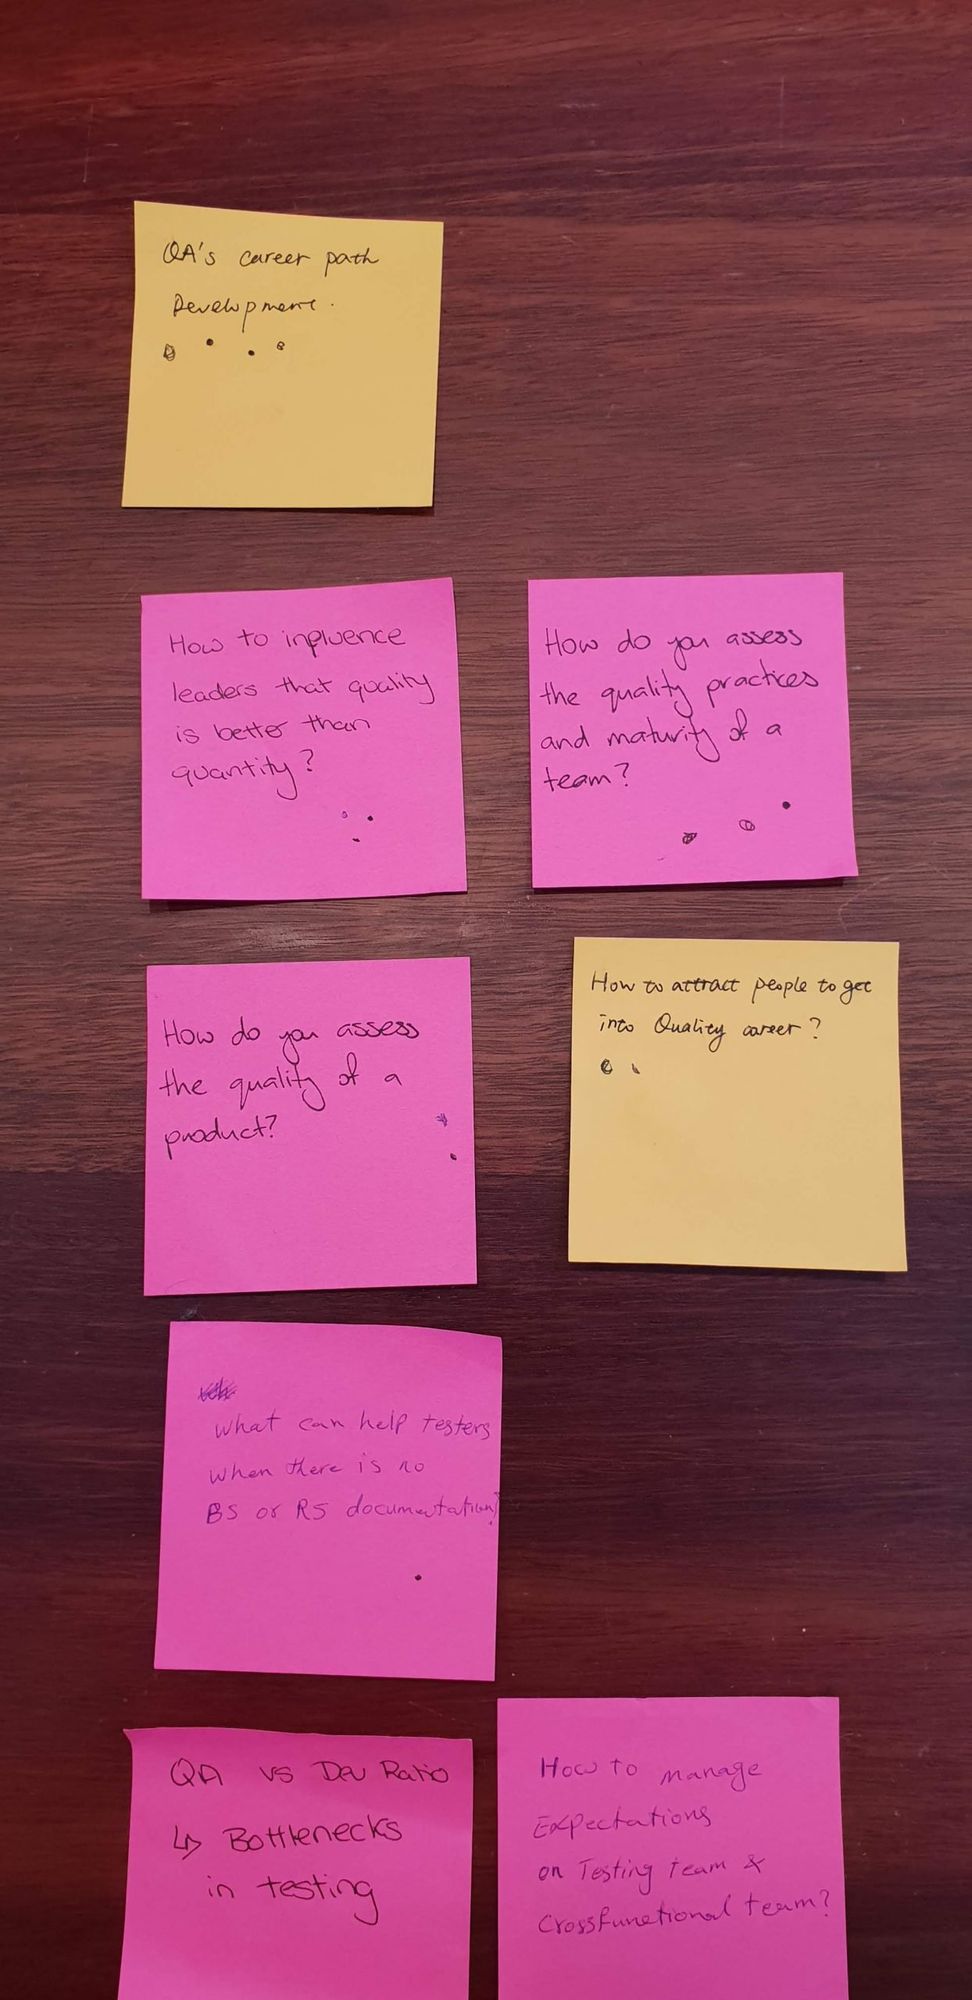 QA's career path
Development.
How to influence
leaders that quality
is better than
quantity?
How do you assess
the quality practices
and maturity of a
team?
How do you assess
the quality of a
product?
How to attract people to get
into Quality career?
What can help testers
when there is no
BS or RS documentation?
QA vs Dev Ratio
↳ Bottlenecks
in testing
How to manage
Expectations
on Testing team &
Crossfunctional team?